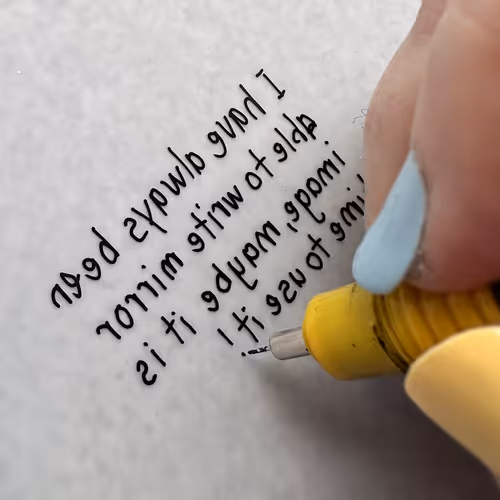 I have always been
able to write mirror
image, maybe it is
time to use it !